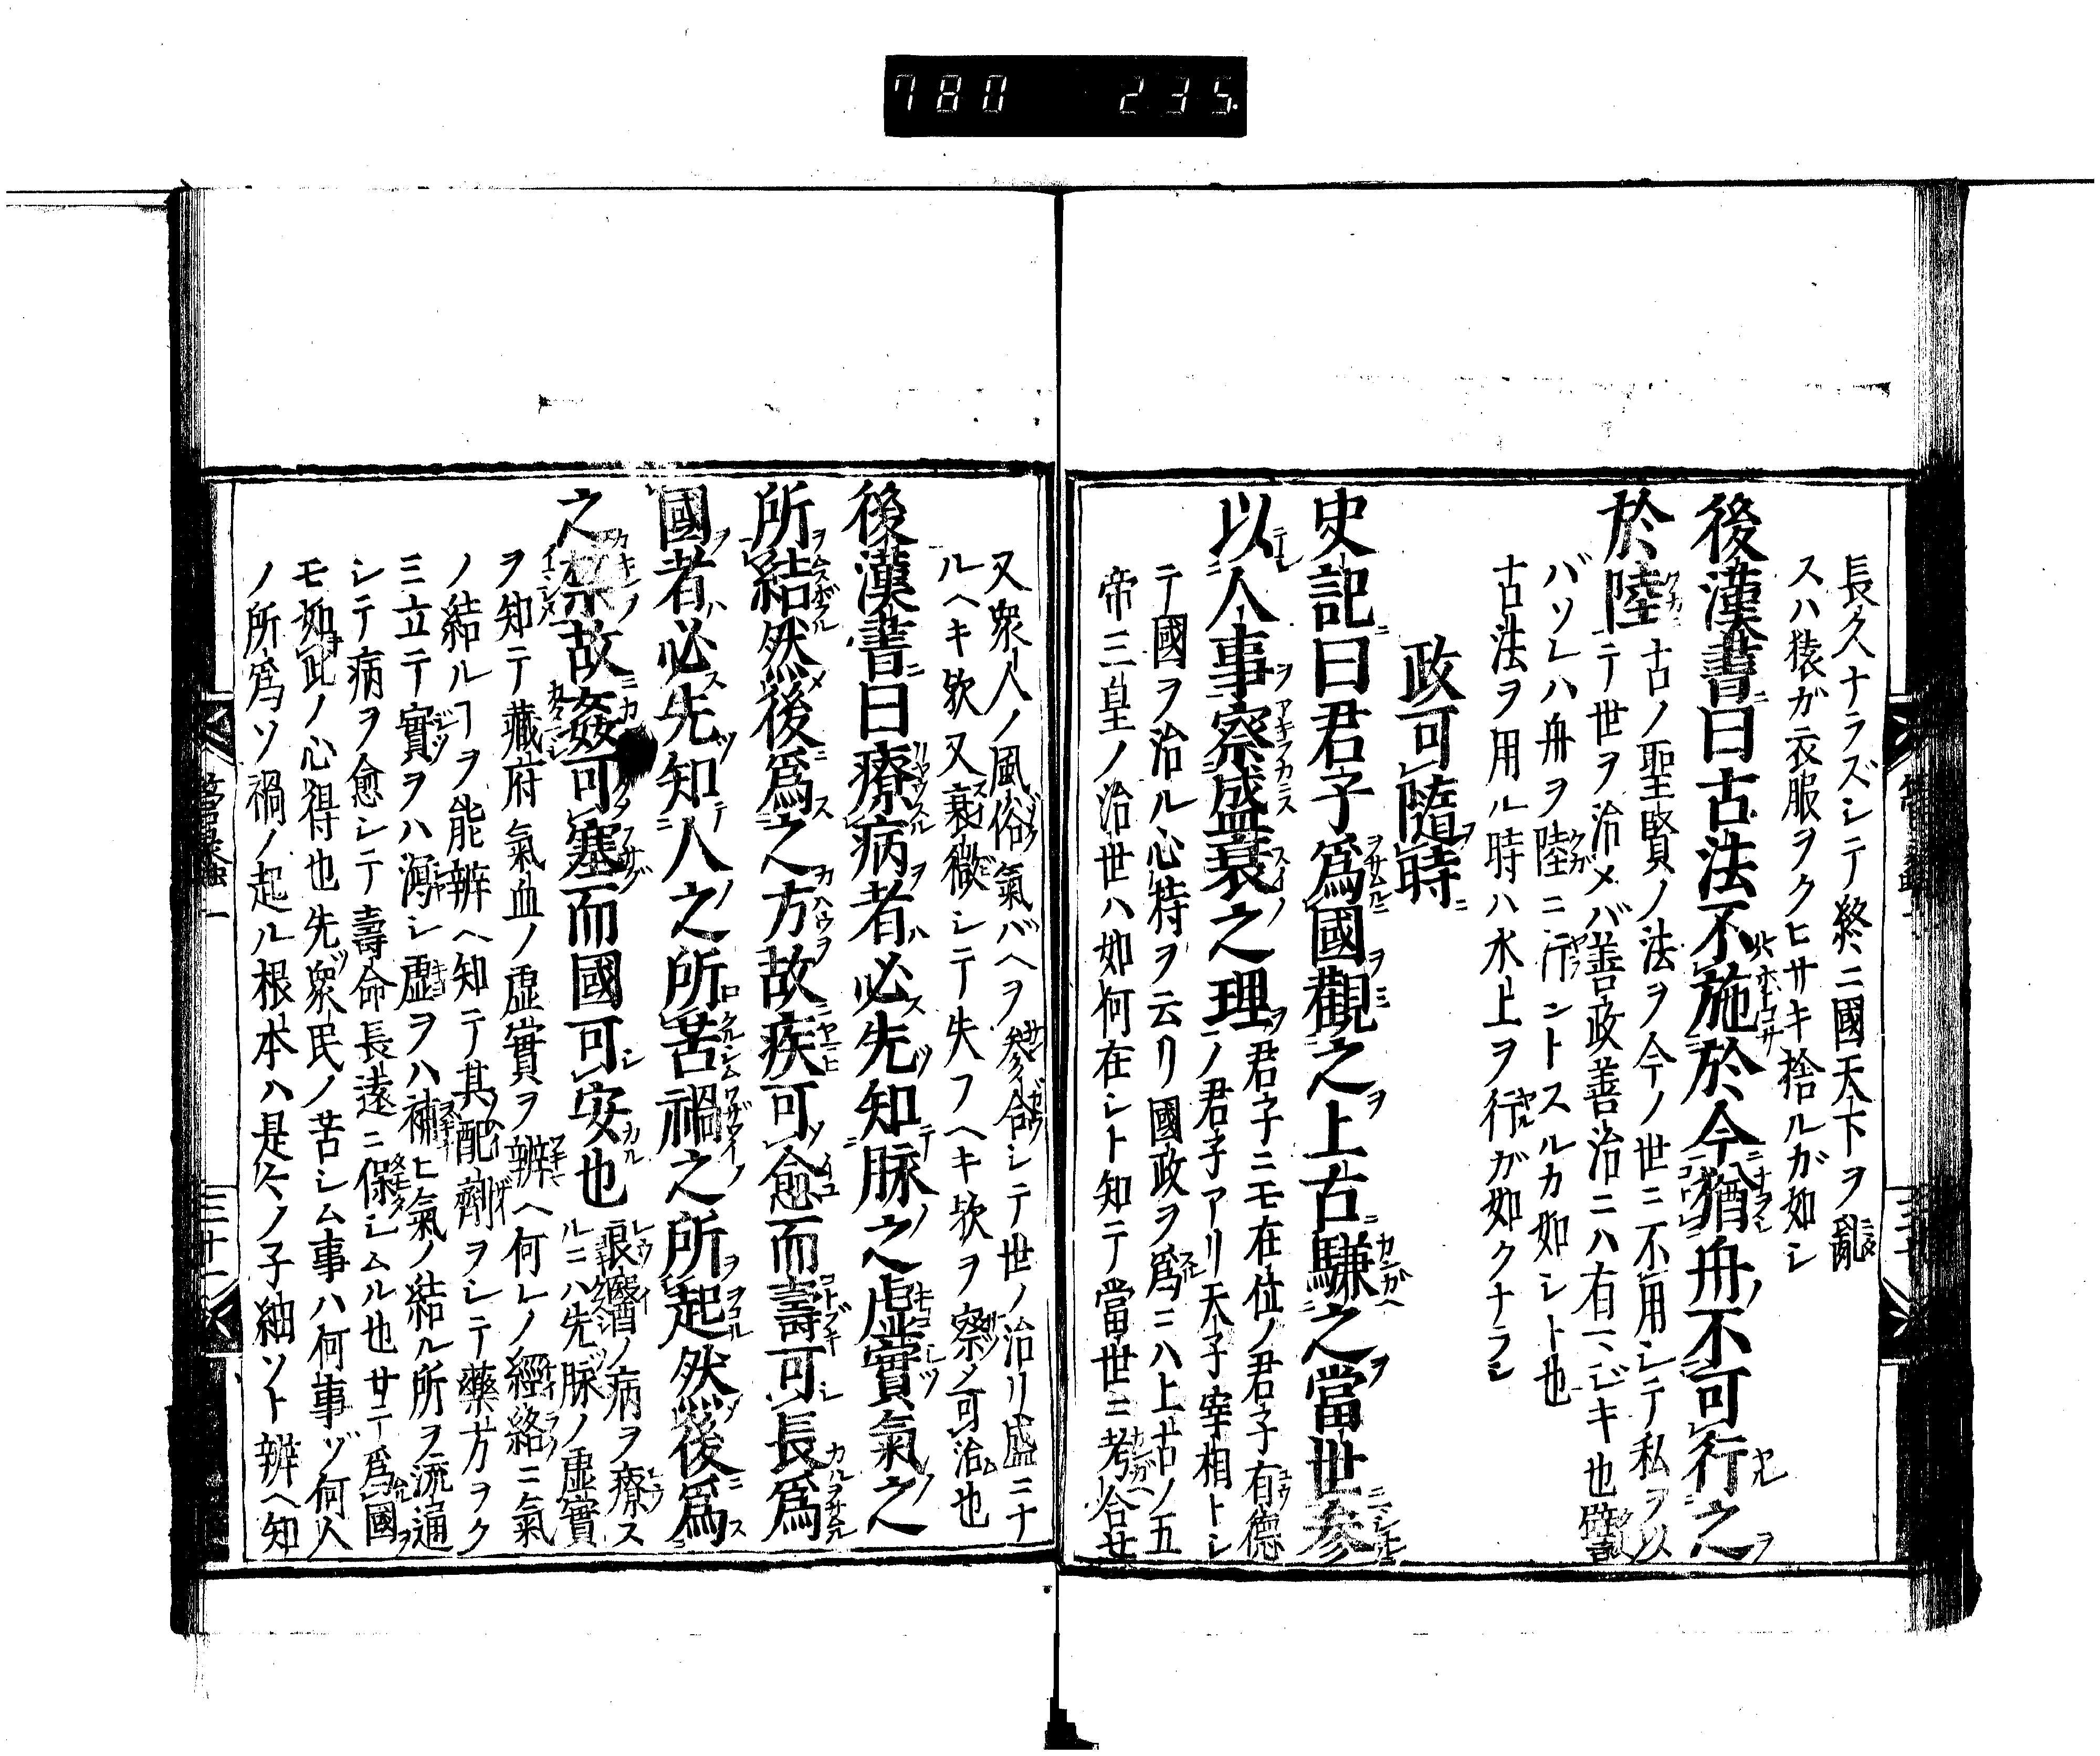 780 235
長久ナラズシテ終ニ國天下ヲ亂
スハ猿ガ衣服ヲクヒサキ捨ルガ如シ
後漢書曰古法不施於今猶舟不可行之
於陸古ノ聖賢ノ法ヲ今ノ世ニ不用シテ私ヲ以
テ世ヲ治メバ善政善治ニハ有マジキ也譬
バソレハ舟ヲ陸ニ行ントスルカ如シト也
古法ヲ用ル時ハ水上ヲ行ガ如クナラン
政可隨時
史記曰君子爲國觀之上古驗之當世参
以人事察盛衰之理君子ニモ在位ノ君子有德
ノ君子アリ天子宰相トシ
テ國ヲ治ル心持ヲ云リ國政ヲ爲ニハ上古ノ五
帝三皇ノ治世ハ如何在シト知テ當世ニ考合せ
又衆人ノ風俗氣バヘヲ參合シテ世ノ治リ盛ニナ
ルヘキ欤又衰微シテ失フヘキ欤ヲ察メ可治也
後漢書曰療病者必先知脉之虛實氣之
所結然後爲之方故疾可愈而壽可長爲
國者必先知人之所苦禍之所起然後爲
之禁故姦可塞而國可安也良醫ノ病ヲ療ス
ルニハ先脉ノ虛實
ヲ知テ藏府氣血ノ虛實ヲ辨ヘ何レノ經絡ニ氣
ノ結ルヿヲ能辨ヘ知テ其配劑ヲシテ藥方ヲク
ミ立テ實ヲハ瀉シ虛ヲハ補ヒ氣ノ結ル所ヲ流通
シテ病ヲ愈シテ壽命長遠ニ保シムル也サテ爲國
モ如此ノ心得也先衆民ノ苦シム事ハ何事ゾ何人
ノ所爲ソ禍ノ起ル根本ハ是々ノ子細ソト辨ヘ知
三十一